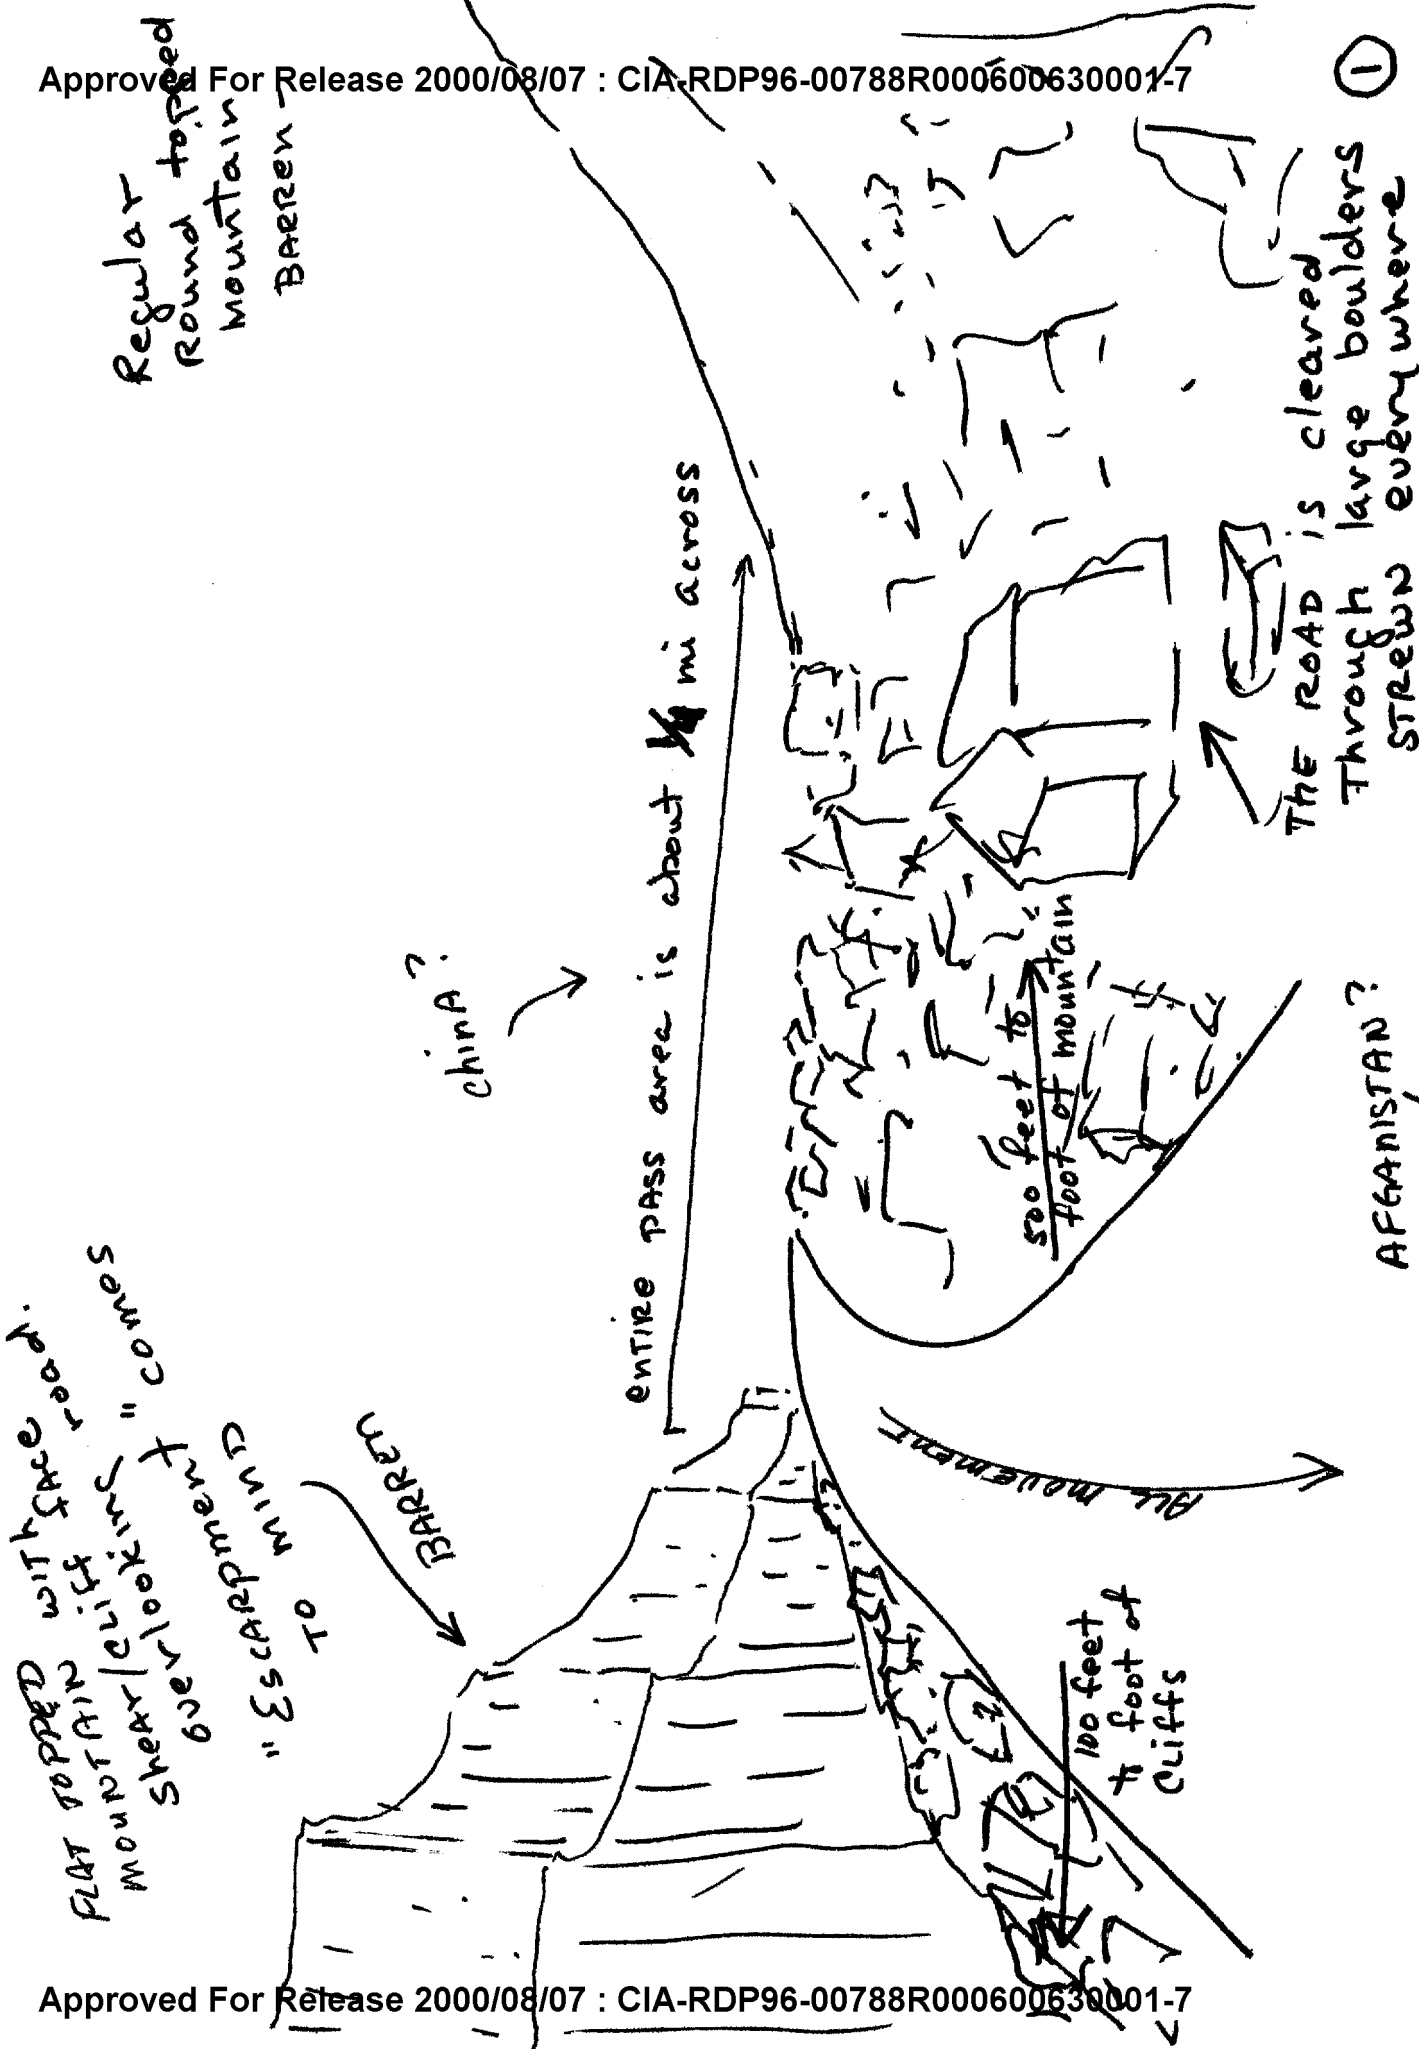 Approved For Release 2000/08/07 : CIA-RDP96-00788R000600630001-7
1
FLAT TOPPED
MOUNTAIN WITH
SHEAR/CLIFF FACE
overlooking road.
"Escarpment" comes
TO MIND
BARREN
Regular
Round topped
Mountain
BARREN -
chinA?
ENTIRE PASS area is about mi across
ALL movement
100 feet
to foot of
Cliffs
500 feet to
foot of mountain
AFGANISTAN?
THE ROAD is cleared
Through large boulders
STREWN everywhere
Approved For Release 2000/08/07 : CIA-RDP96-00788R000600630001-7